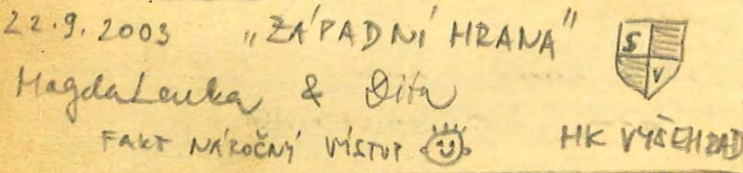 22.9.2003 „ZÁPADNÍ HRANA" S V
MagdaLenka & Dita
FAKT NÁROČNÝ VÍSTUP HK VYŠEHRAD